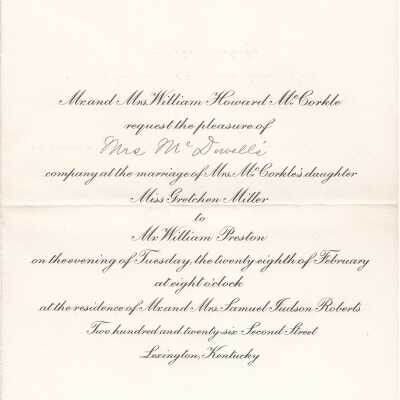 Mr. and Mrs. William Howard McCorkle
request the pleasure of
Mrs McDowell's
company at the marriage of Mrs. McCorkle's daughter
Miss Gretchen Miller
to
Mr. William Preston
on the evening of Tuesday, the twenty eighth of February
at eight o'clock
at the residence of Mr. and Mrs. Samuel Judson Roberts
Two hundred and twenty-six Second Street
Lexington, Kentucky